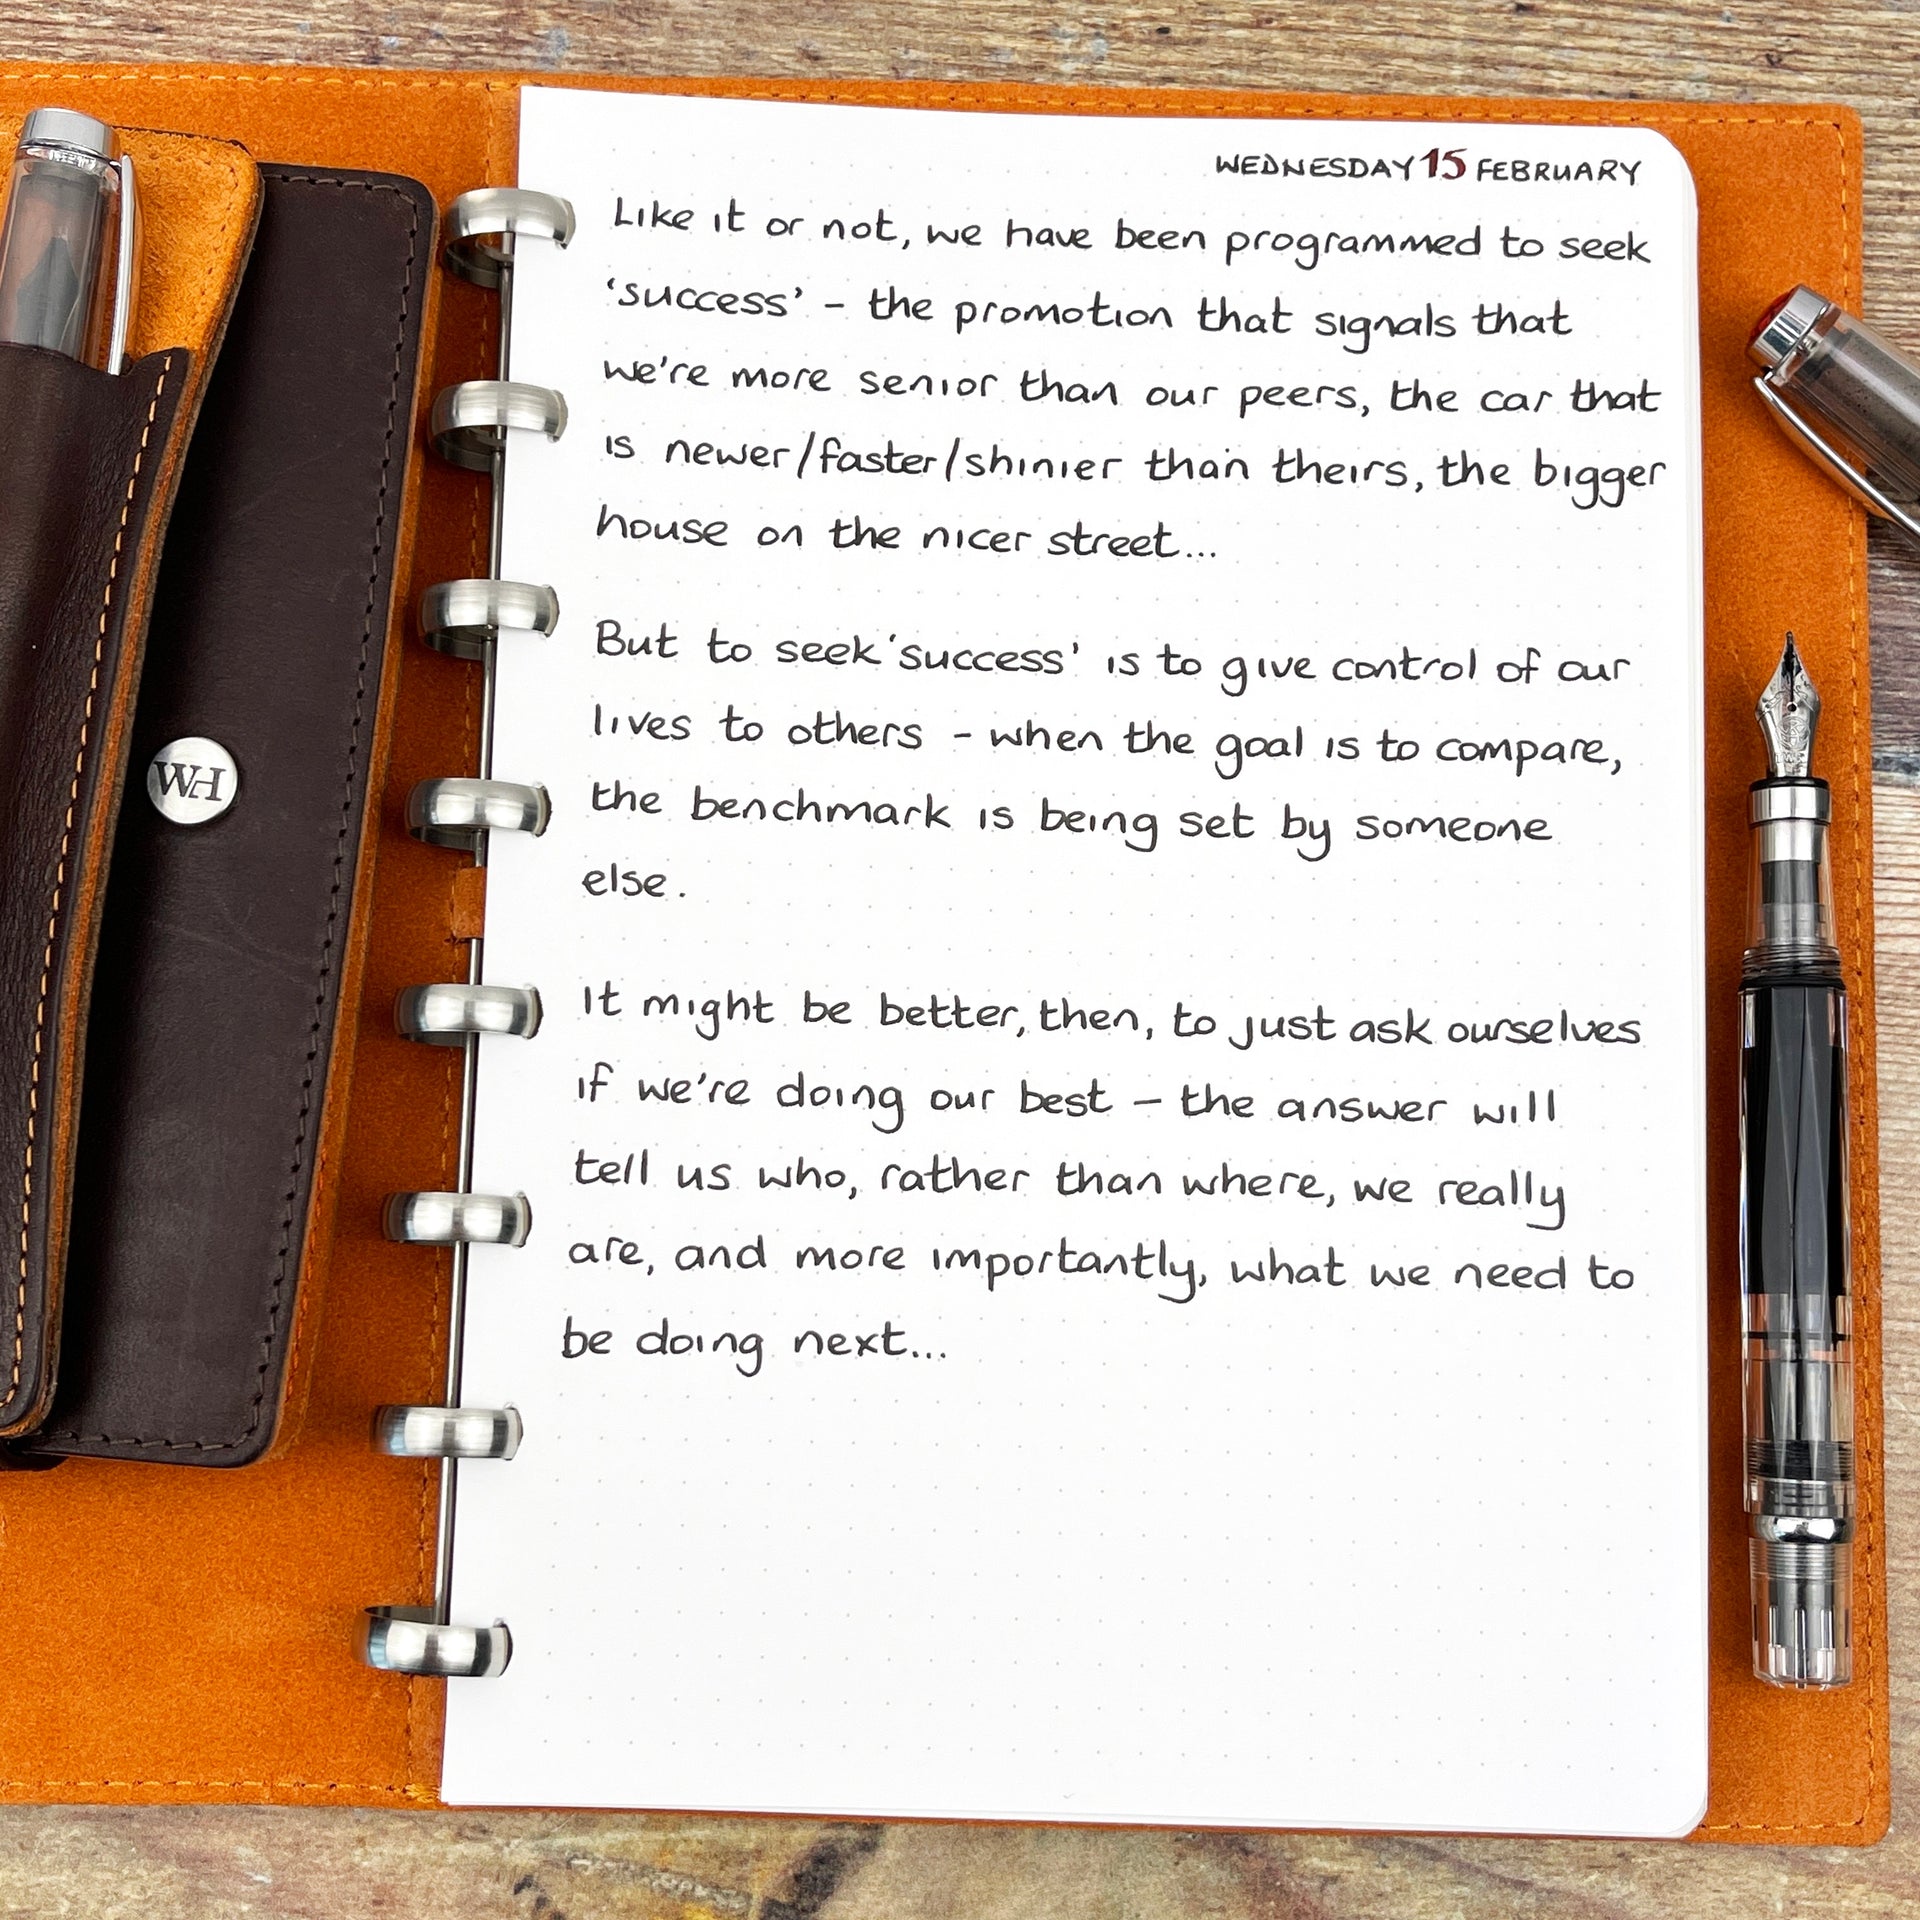 WEDNESDAY 15 FEBRUARY
Like it or not, we have been programmed to seek
'success' - the promotion that signals that
we're more senior than our peers, the car that
is newer/faster/shinier than theirs, the bigger
house on the nicer street...
But to seek 'success' is to give control of our
lives to others - when the goal is to compare,
the benchmark is being set by someone
else.
It might be better, then, to just ask ourselves
if we're doing our best - the answer will
tell us who, rather than where, we really
are, and more importantly, what we need to
be doing next...
WH